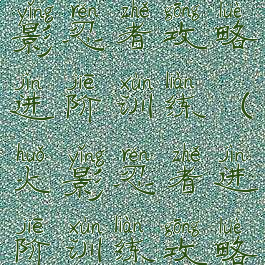 yǐng rěn zhě gōng lüè
影忍者攻略
jìn jiē xùn liàn
进阶训练(
huǒ yǐng rěn zhě jìn
火影忍者进
jiē xùn liàn gōng lüè
阶训练攻略